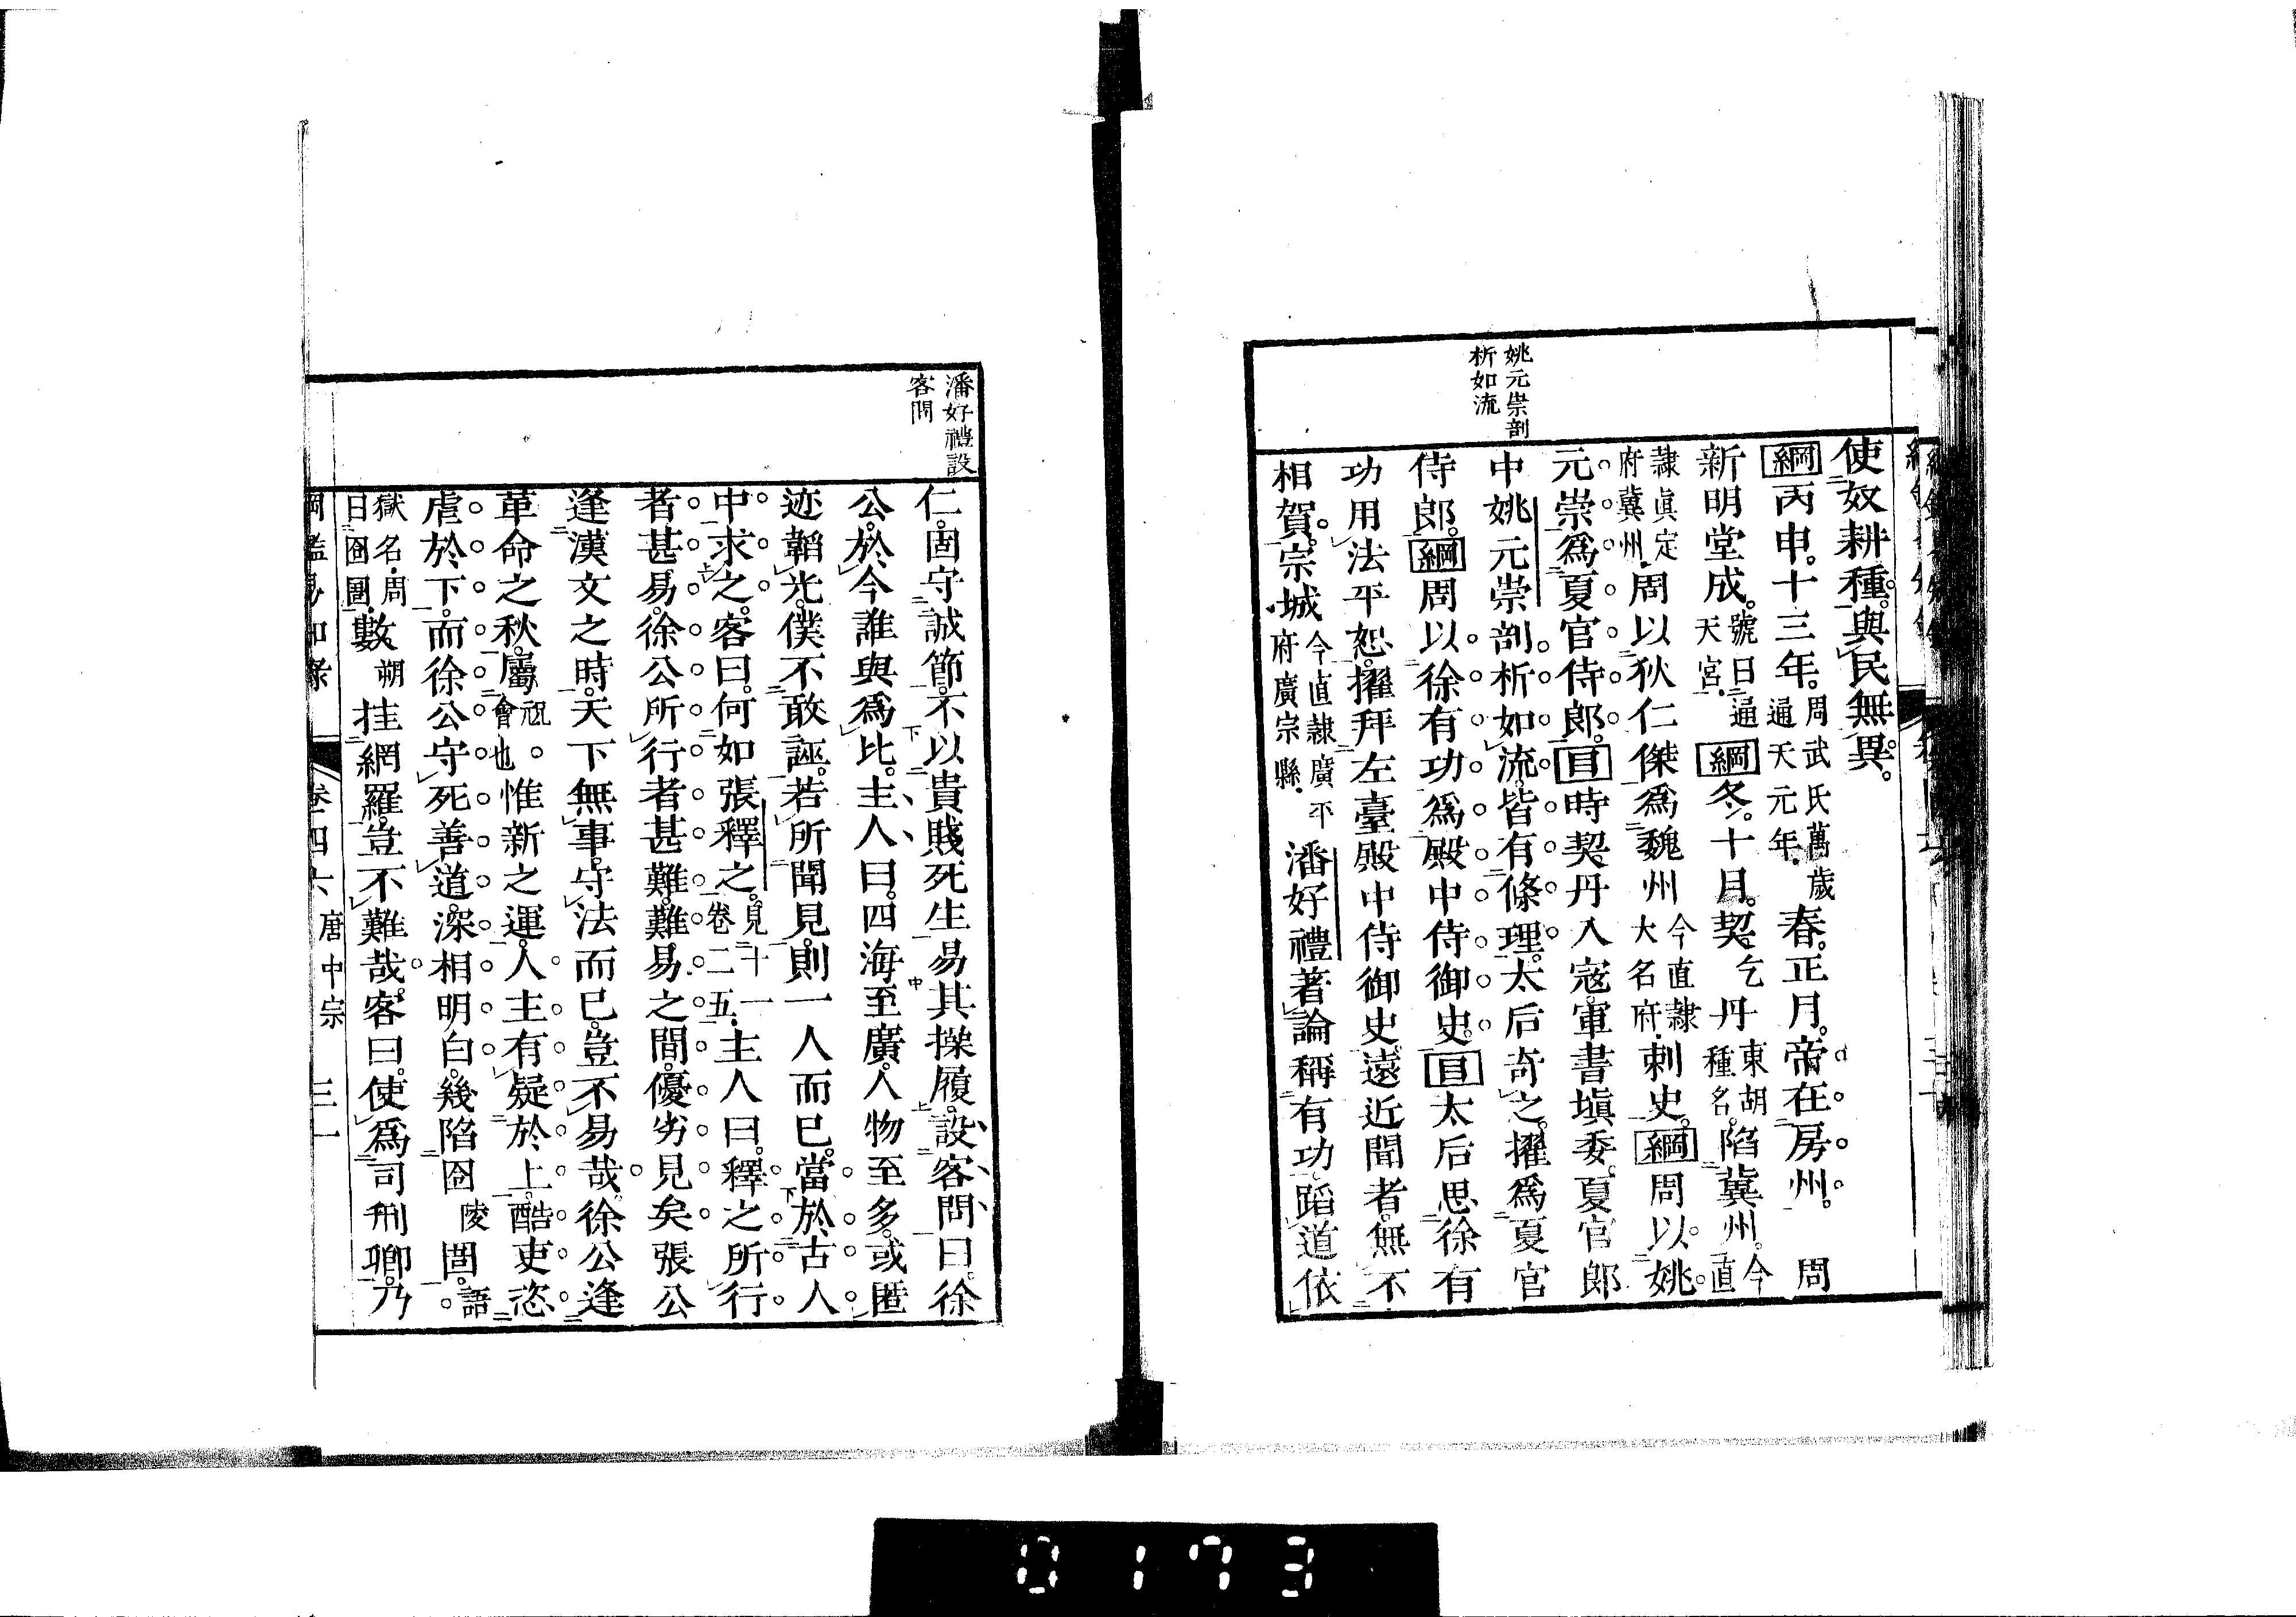 姚元崇剖
析如流
使奴耕種與民無異
綱丙申十三年周武氏萬歲通天元年春正月帝在房州 周
新明堂成號曰通天宮綱冬十月契乞丹東胡種名陷冀州今直
隷眞定府冀州周以狄仁傑爲魏州今直隷大名府刺史綱周以姚
元崇爲夏官侍郎目時契丹入寇軍書塡委夏官郎
中姚元崇剖析如流皆有條理太后奇之擢爲夏官
侍郎綱周以徐有功爲殿中侍御史目太后思徐有
功用法平恕擢拜左臺殿中侍御史遠近聞者無不
相賀宗城今直隷廣平府廣宗縣潘好禮著論稱有功蹈道依
潘好禮設
客問
仁固守誠節不以貴賤死生易其操履設客問曰徐
公於今誰與爲比主人曰四海至廣人物至多或匿
迹韜光僕不敢誣若所聞見則一人而已當於古人
中求之客曰何如張釋之見十一卷二五主人曰釋之所行
者甚易徐公所行者甚難難易之間優劣見矣張公
逢漢文之時天下無事守法而已豈不易哉徐公逢
革命之秋屬祝會也惟新之運人主有疑於上酷吏恣
虐於下而徐公守死善道深相明白幾陷囹陵圄語
獄名周曰囹圄數朔挂網羅豈不難哉客曰使爲司刑卿乃
綱鑑易知录 卷四六 唐中宗 三一
0173